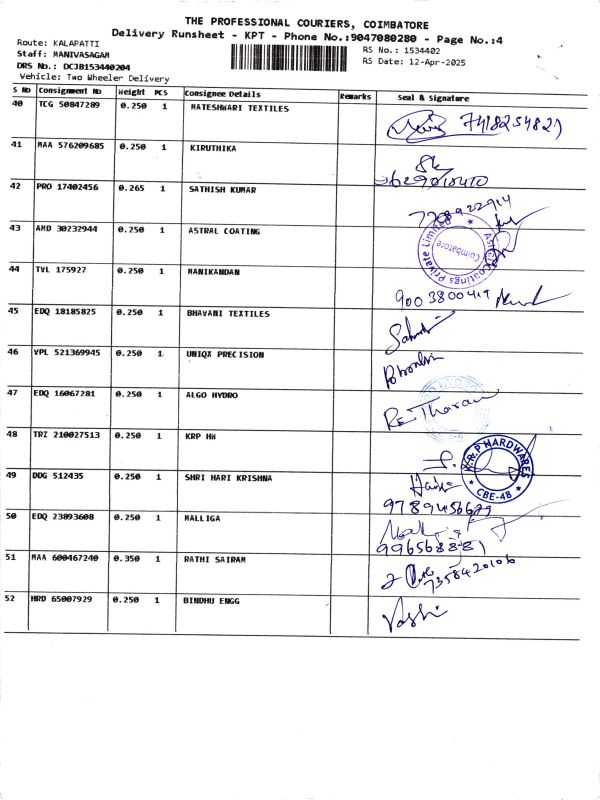 THE PROFESSIONAL COURIERS, COIMBATORE
Delivery Runsheet - KPT - Phone No.:9047080280 - Page No.:4
Route: KALAPATTI
RS No.: 1534402
Staff: MANIVASAGAM
RS Date: 12-Apr-2025
DRS No.: DCJB1534440204
Vehicle: Two Wheeler Delivery
S No Consignment No Weight PCS Consignee Details Remarks Seal & Signature
40 TCG 50847289 0.250 1 MATESHWARI TEXTILES
41 MAA 576209685 0.250 1 KIRUTHIKA
42 PRO 17402456 0.265 1 SATHISH KUMAR
43 AMD 30232944 0.250 1 ASTRAL COATING
Astral Coatings Private Limited
Coimbatore
44 TVL 175927 0.250 1 MANIKANDAN
45 EDQ 18185825 0.250 1 BHAVANI TEXTILES
46 VPL 521369945 0.250 1 UNIQX PRECISION
47 EDQ 16067281 0.250 1 ALGO HYDRO
48 TRZ 210027513 0.250 1 KRP HW
K.R.P HARDWARES
CBE-48
49 DDG 512435 0.250 1 SHRI HARI KRISHNA
50 EDQ 23893608 0.250 1 MALLIGA
51 MAA 600467240 0.350 1 RATHI SAIRAM
7358420106
52 HRD 65007929 0.250 1 BINDHU ENGG